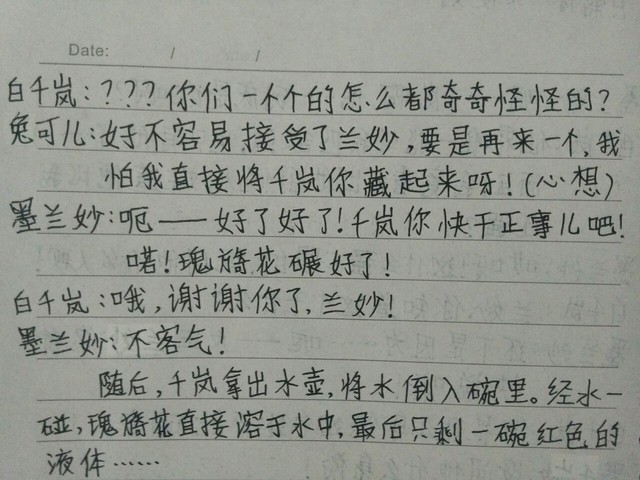 Date: / /
白千岚：？？？你们一个个的怎么都奇奇怪怪的？
兔可儿：好不容易接受了兰妙，要是再来一个，我
怕我直接将千岚你藏起来呀！（心想）
墨兰妙：呃——好了好了！千岚你快干正事儿吧！
喏！瑰旖花碾好了！
白千岚：哦，谢谢你了，兰妙！
墨兰妙：不客气！
随后，千岚拿出水壶，将水倒入碗里。经水一
碰，瑰旖花直接溶于水中，最后只剩一碗红色的
液体……